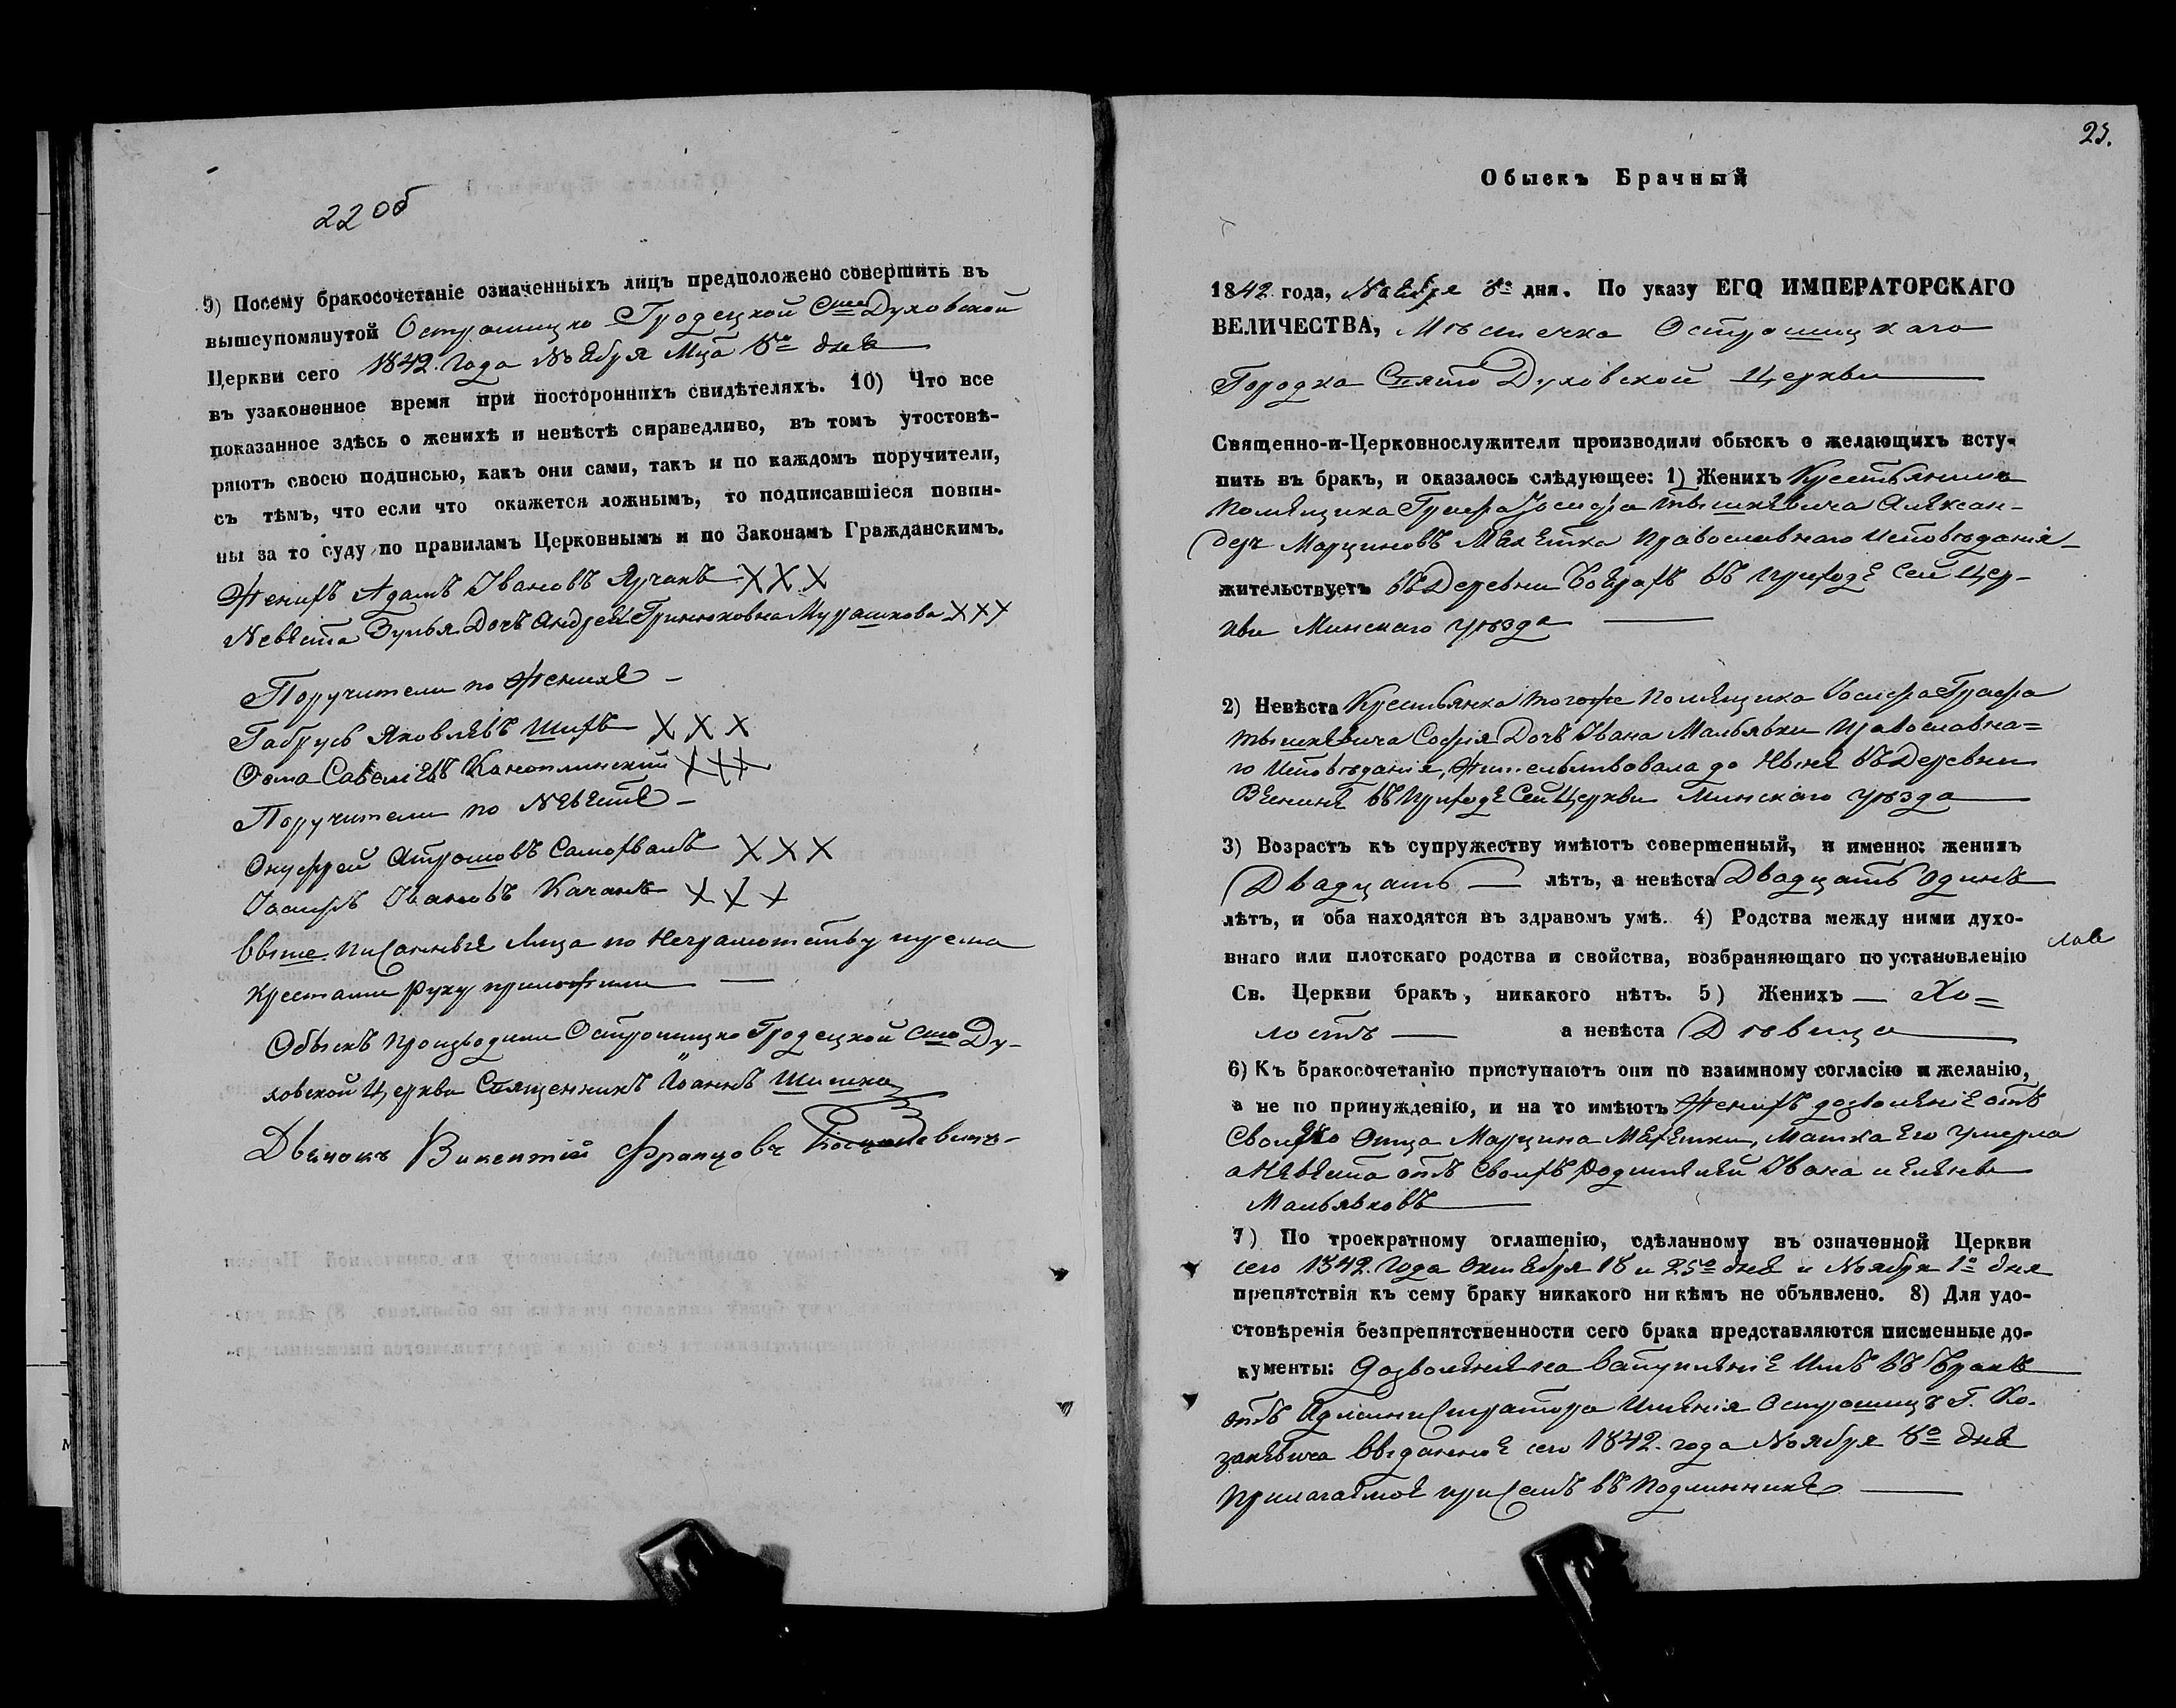 22 об
9) Посему бракосочетаніе означенныхъ лицъ предположено совершить въ
вышеупомянутой Острошицко Гродецкой Сто Духовской
Церкви сего 1842. года Ноября Мца 8го дня
въ узаконенное время при постороннихъ свидѣтеляхъ. 10) Что все
показанное здѣсь о женихѣ и невѣстѣ справедливо, въ томъ утостовѣ-
ряютъ своею подписью, какъ они сами, такъ и по каждомъ поручители,
съ тѣмъ, что если что окажется ложнымъ, то подписавшіеся повин-
ны за то суду по правиламъ Церковнымъ и по Законамъ Гражданскимъ.
Женихъ Адамъ Ивановъ XXX
Невѣста Зуновья Дочь Андрея Муrашкова XXX
Поручители по Женихѣ -
Габрусь Яковлевъ Шихъ XXX
Ѳома Савеліевъ Каноплинский XXX
Поручители по Невѣстѣ -
Онуфрей Самохвалъ XXX
Іосифъ Ивановъ Качанъ XXX
Выше писанные Лица по Неграмотству тремя
Крестами руку приложили
Обыскъ производили Острошицко Гродецкой Сто Ду-
ховской Церкви Священникъ Іоаннъ Шишка
Дьячокъ Викентій Францовъ
23.
Обыскъ Брачный
1842 года, Ноября 8го дня. По указу ЕГО ИМПЕРАТОРСКАГО
ВЕЛИЧЕСТВА, Мѣстечка Острошицкаго
Городка Свято Духовской Церкви
Священно-и-Церковнослужители производили обыскъ о желающихъ всту-
пить въ бракъ, и оказалось слѣдующее: 1) Женихъ Крестьянинъ
Помѣщика Графа Іосифа Тышкѣвича Алексан-
деръ Марциновъ Махетка Православнаго Исповѣданія
жительствуетъ въ Деревни въ Приходѣ Сей Цер-
кви Минскаго уѣзда
2) Невѣста Крестьянка тогоже Помѣщика Іосифа Графа
Тышкевича Софія Дочь Ивана Мальявки Православна=
го Исповѣданія, Жительствовала до Нынѣ въ Деревни
въ Приходѣ Сей Церкви Минскаго уѣзда
3) Возрастъ къ супружеству имѣютъ совершенный, и именно: женихъ
Двадцать лѣтъ, а невѣста Двадцать Одинъ
лѣтъ, и оба находятся въ здравомъ умѣ. 4) Родства между ними духо-
внаго или плотскаго родства и свойства, возбраняющаго по установленію
Св. Церкви бракъ, никакого нѣтъ. 5) Женихъ Хо=
лостъ а невѣста Дѣвица
6) Къ бракосочетанію приступаютъ они по взаимному согласію и желанію,
а не по принужденію, и на то имѣютъ Женихъ дозволеніе отъ
Своего Отца Марцина Махетки, Матка Его умерла
а Невѣста отъ Своихъ Родителей Ивана и Елены
Мальявковъ
7) По троекратному оглашенію, сдѣланному въ означенной Церкви
сего 1842. Года Октября 18 и 25го дня и Ноября 1го дня
препятствія къ сему браку никакого ни кѣмъ не объявлено. 8) Для удо-
стовѣренія безпрепятственности сего брака представляются писменные до-
кументы: Дозволеніе на вступленіе Имъ въ Бракъ
отъ Администратора Имѣнія Острошицъ Г. Ко-
закевича выданное сего 1842. года Ноября 8го дня
прилагаемое при семъ въ Подлинникѣ